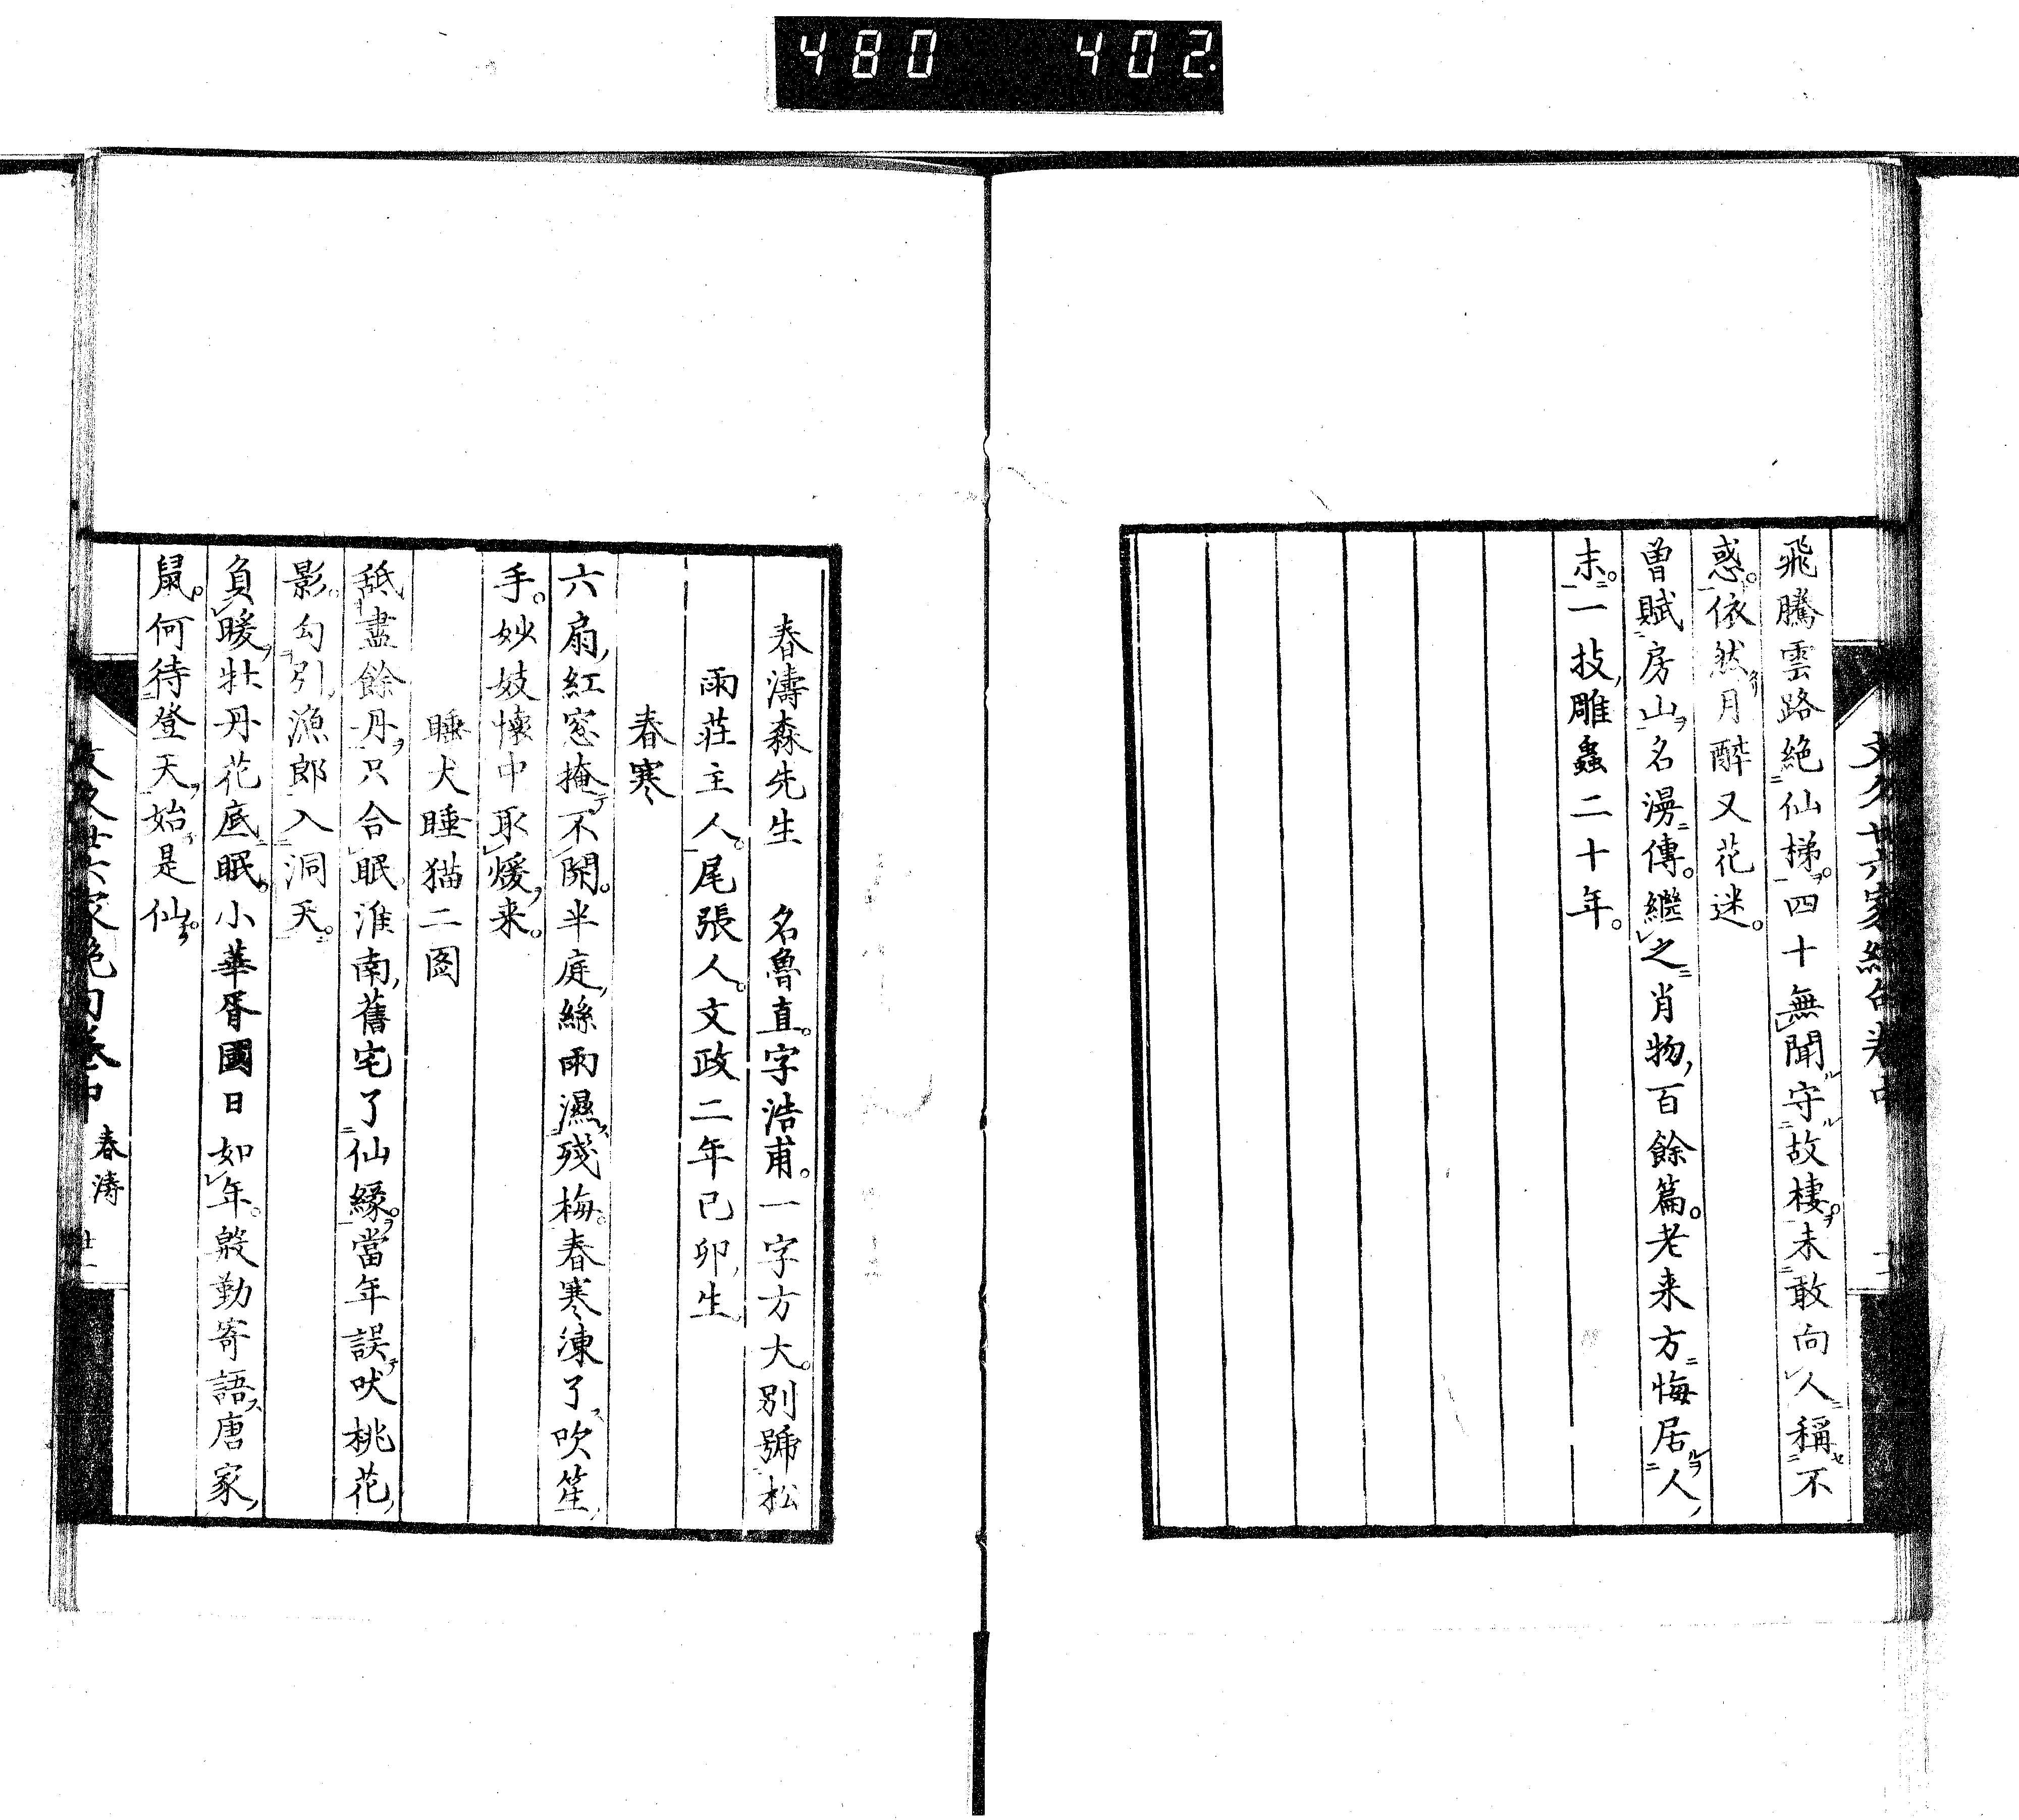 480 402
飛騰雲路絶仙梯。四十無聞守故棲。未敢向人稱不
惑。依然月醉又花迷。
曾賦房山名漫傳。繼之肖物百餘篇。老来方悔居人
末。一技雕蟲二十年。
春濤森先生 名魯直。字浩甫。一字方大。別號松
雨莊主人。尾張人。文政二年己卯生
春寒
六扇紅窓掩不開。半庭絲雨濕殘梅。春寒凍了吹笙
手。妙妓懷中取煖来。
睡犬睡猫二図
舐盡餘丹只合眠。淮南舊宅了仙縁。當年誤吠桃花
影。勾引漁郎入洞天。
負暖牡丹花底眠。小華胥國日如年。殷勤寄語唐家
鼠。何待登天始是仙。
春濤